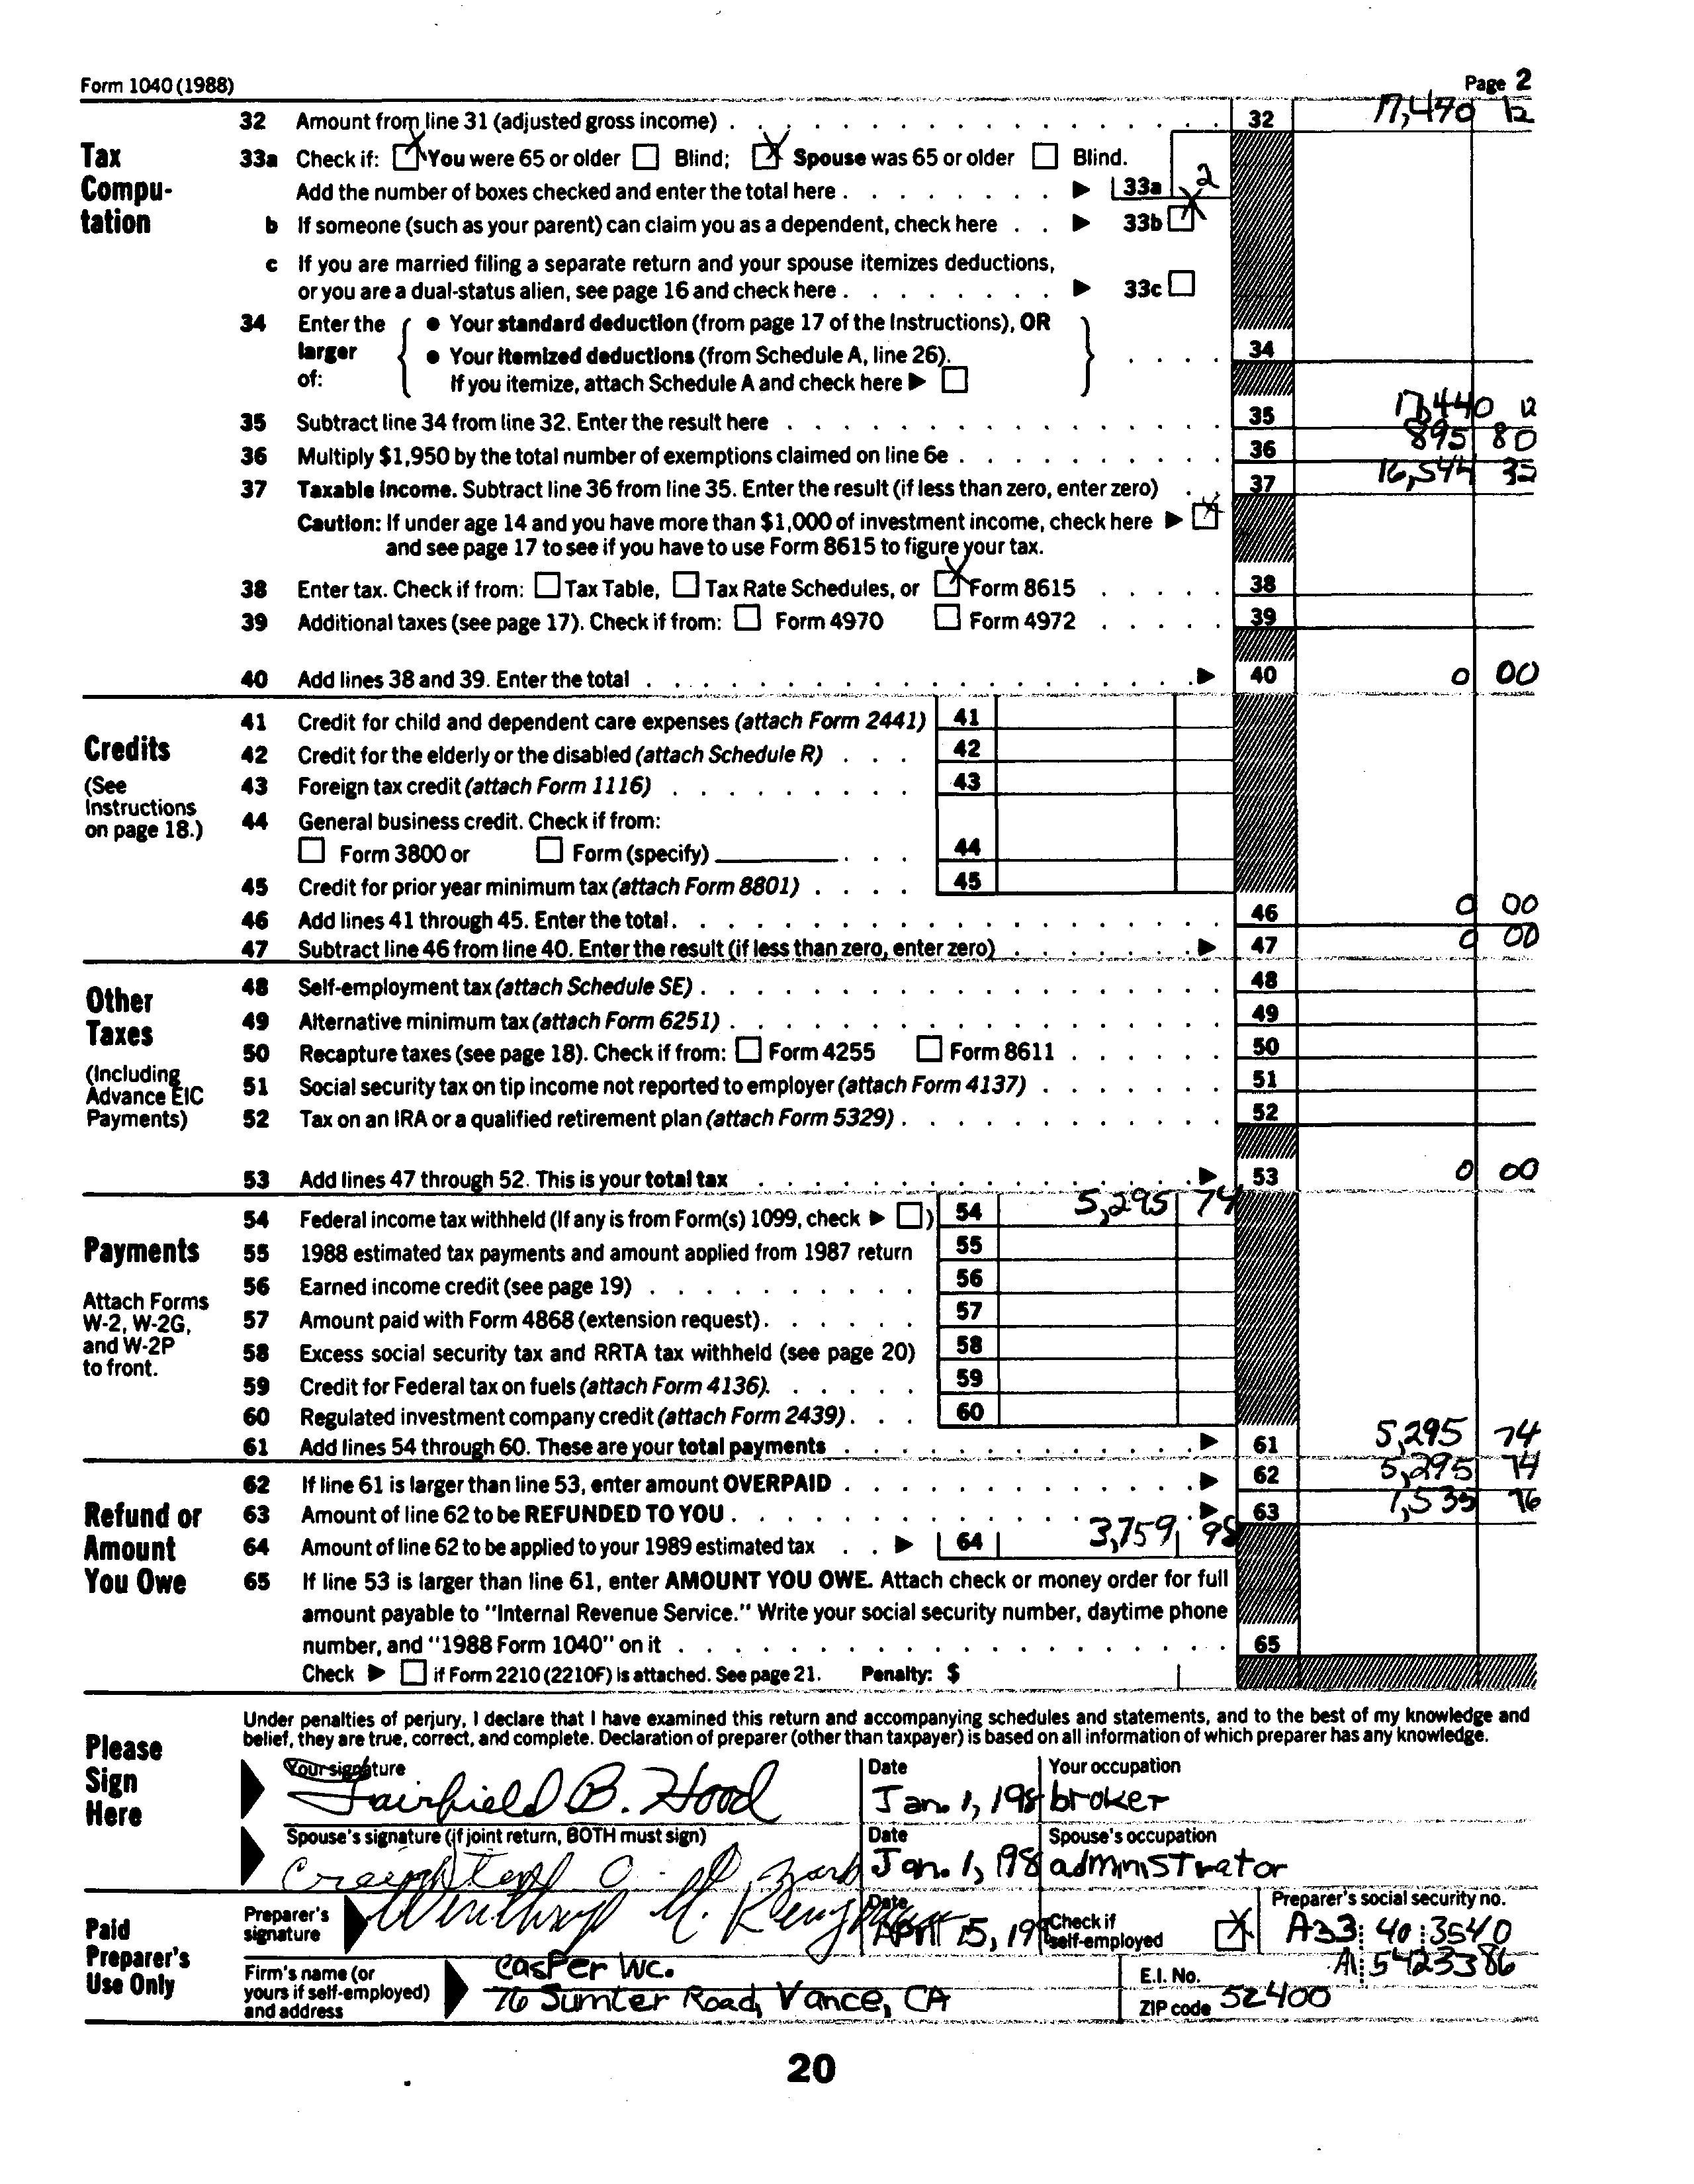 Form 1040 (1988) Page 2
Tax Computation
32 Amount from line 31 (adjusted gross income) 32 17,470 12
33a Check if: X You were 65 or older Blind; X Spouse was 65 or older Blind.
Add the number of boxes checked and enter the total here ▶ 33a 2
b If someone (such as your parent) can claim you as a dependent, check here ▶ 33b X
c If you are married filing a separate return and your spouse itemizes deductions,
or you are a dual-status alien, see page 16 and check here ▶ 33c
34 Enter the larger of: ● Your standard deduction (from page 17 of the Instructions), OR
● Your itemized deductions (from Schedule A, line 26). 34
If you itemize, attach Schedule A and check here ▶
35 Subtract line 34 from line 32. Enter the result here 35 17,440 12
36 Multiply $1,950 by the total number of exemptions claimed on line 6e 36 895 80
37 Taxable income. Subtract line 36 from line 35. Enter the result (if less than zero, enter zero) 37 16,544 32
Caution: If under age 14 and you have more than $1,000 of investment income, check here ▶ X
and see page 17 to see if you have to use Form 8615 to figure your tax.
38 Enter tax. Check if from: Tax Table, Tax Rate Schedules, or X Form 8615 38
39 Additional taxes (see page 17). Check if from: Form 4970 Form 4972 39
40 Add lines 38 and 39. Enter the total ▶ 40 0 00
Credits
(See Instructions on page 18.)
41 Credit for child and dependent care expenses (attach Form 2441) 41
42 Credit for the elderly or the disabled (attach Schedule R) 42
43 Foreign tax credit (attach Form 1116) 43
44 General business credit. Check if from:
Form 3800 or Form (specify) 44
45 Credit for prior year minimum tax (attach Form 8801) 45
46 Add lines 41 through 45. Enter the total 46 0 00
47 Subtract line 46 from line 40. Enter the result (if less than zero, enter zero) ▶ 47 0 00
Other Taxes
(Including Advance EIC Payments)
48 Self-employment tax (attach Schedule SE) 48
49 Alternative minimum tax (attach Form 6251) 49
50 Recapture taxes (see page 18). Check if from: Form 4255 Form 8611 50
51 Social security tax on tip income not reported to employer (attach Form 4137) 51
52 Tax on an IRA or a qualified retirement plan (attach Form 5329) 52
53 Add lines 47 through 52. This is your total tax ▶ 53 0 00
Payments
Attach Forms W-2, W-2G, and W-2P to front.
54 Federal income tax withheld (If any is from Form(s) 1099, check ▶ ) 54 5,295 74
55 1988 estimated tax payments and amount applied from 1987 return 55
56 Earned income credit (see page 19) 56
57 Amount paid with Form 4868 (extension request) 57
58 Excess social security tax and RRTA tax withheld (see page 20) 58
59 Credit for Federal tax on fuels (attach Form 4136) 59
60 Regulated investment company credit (attach Form 2439) 60
61 Add lines 54 through 60. These are your total payments ▶ 61 5,295 74
Refund or Amount You Owe
62 If line 61 is larger than line 53, enter amount OVERPAID ▶ 62 5,295 74
63 Amount of line 62 to be REFUNDED TO YOU ▶ 63 1,535 76
64 Amount of line 62 to be applied to your 1989 estimated tax ▶ 64 3,759 98
65 If line 53 is larger than line 61, enter AMOUNT YOU OWE. Attach check or money order for full
amount payable to "Internal Revenue Service." Write your social security number, daytime phone
number, and "1988 Form 1040" on it 65
Check ▶ if Form 2210 (2210F) is attached. See page 21. Penalty: $
Please Sign Here
Under penalties of perjury, I declare that I have examined this return and accompanying schedules and statements, and to the best of my knowledge and
belief, they are true, correct, and complete. Declaration of preparer (other than taxpayer) is based on all information of which preparer has any knowledge.
Your signature Date Your occupation
Fairfield B. Hood Jan. 1, 198 broker
Spouse's signature (if joint return, BOTH must sign) Date Spouse's occupation
Jan. 1, 198 administrator
Paid Preparer's Use Only
Preparer's signature Winthrop M. Date April 15, 19 Check if self-employed X Preparer's social security no. A33 40 3540
Firm's name (or yours if self-employed) and address Casper Wc. E.I. No. A1 5423386
76 Sumter Road, Vance, CA ZIP code 52400
20